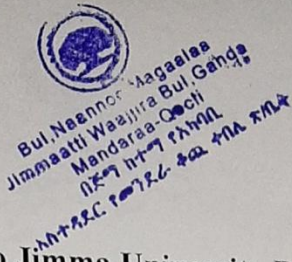 Bul,Naannoo Magaalaa
Jimmaatti Waajjira Bul,Ganda
Mandaraa-Qocii
በጅማ ከተማ የአካባቢ
አስተዳደር የመንደራ ቆጪ ቀበሌ ጽ/ቤት
Jimma University